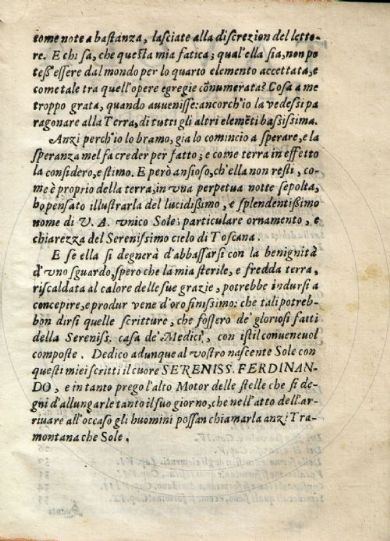 come note a bastanza, lasciate alla discrezion del letto-
re. E chi sa, che questa mia fatica; qual'ella sia, non po
tess'essere dal mondo per lo quarto elemento accettata, e
come tale tra quell'opere egregie cõnumerata? Cosa a me
troppo grata, quando auuenisse: ancorch'io la vedessi pa
ragonare alla Terra, di tutti gli altri elemẽti bassissima.
Anzi perch'io lo bramo, gia lo comincio a sperare, e la
speranza mel fa creder per fatto; e come terra in effetto
la considero, e stimo. E però ansioso, ch'ella non resti, co-
me è proprio della terra, in vna perpetua notte sepolta,
hò pensato illustrarla del lucidissimo, e splendentissimo
nome di V. A. vnico Sole; particulare ornamento, e
chiarezza del Serenissimo cielo di Toscana.
E se ella si degnerà d'abbassarsi con la benignità
d'vno sguardo, spero che la mia sterile, e fredda terra,
riscaldata al calore delle sue grazie, potrebbe indursi a
concepire, e produr vene d'oro finissimo: che tali potreb-
bon dirsi quelle scritture, che fossero de' gloriosi fatti
della Sereniss. casa de' Medici, con istil conueneuol
composte. Dedico adunque al vostro nascente Sole con
questi miei scritti il cuore SERENISS. FERDINAN-
DO, e in tanto prego l'alto Motor delle stelle che si de-
gni d'allungarle tanto il suo giorno, che nell'atto dell'ar-
riuare all'occaso gli huomini possan chiamarla anzi Tra-
montana che Sole.